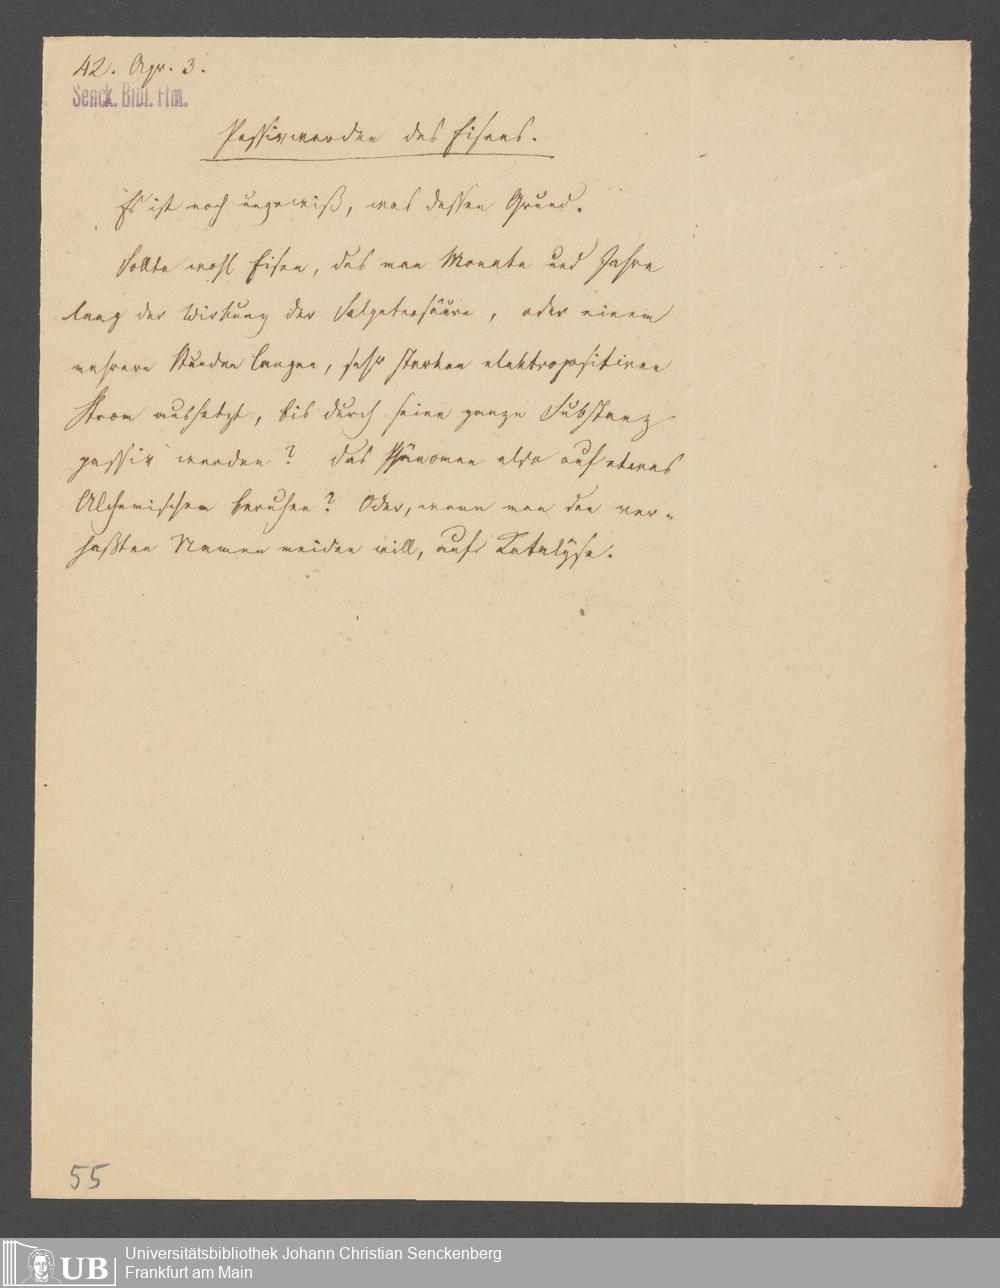 42. Apr. 3.
Senck. Bibl. Ffm.
Passivwerden des Eisens.
Es ist noch ungewiß, was dessen Grund.
Sollte wohl Eisen, das man Monate und Jahre
lang der Wirkung der Salpetersäure, oder einem
mehrere Stunden langen, sehr starken elektropositiven
Strom aussetzt, bis durch seine ganze Substanz
passiv werden? Das Phänomen also auf etwas
Alchemischem beruhen? Oder, wenn man den ver-
haßten Namen meiden will, aufs Katalyse.
55
UB
Universitätsbibliothek Johann Christian Senckenberg
Frankfurt am Main